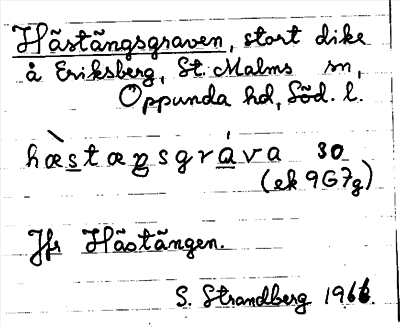 Hästängsgraven, stort dike
å Eriksberg, St. Malms sn,
Oppunda hd, Söd. l.
hæ̀stæŋsgráva 30
(ek 967g)
Jfr Hästängen.
S. Strandberg 1966.